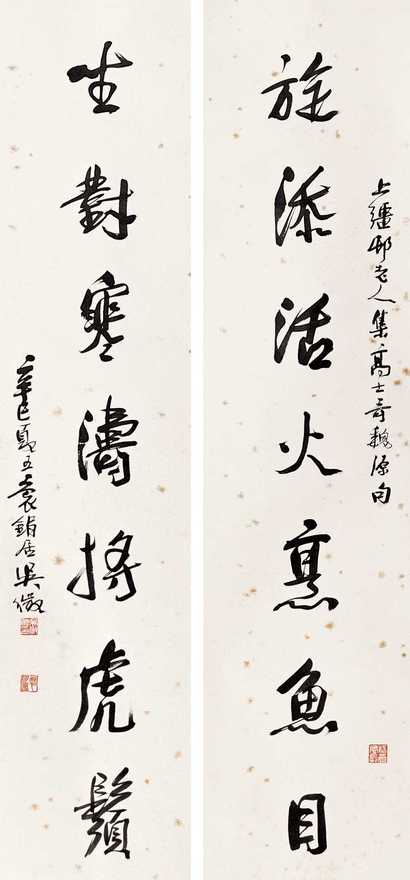 上彊邨老人集高士奇魏源句
旋添活火烹魚目
坐對寒濤捋虎鬚
辛巳夏五袁鵠居吳徵